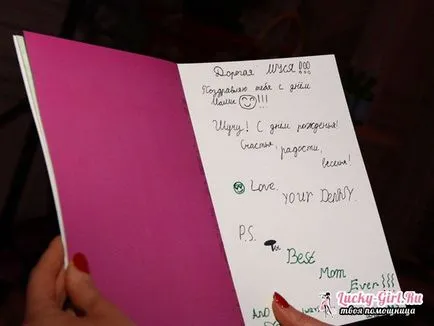 Дорогая Муся!!!
Поздравляю тебя с днём
Мамы !!!
Шучу! С днём рожденья!
Счастья, радости,
веселья!
Love,
your Denny.
P.S.
The
Best
Mom
Ever}}}
And
Lucky-Girl.Ru
твоя помощница